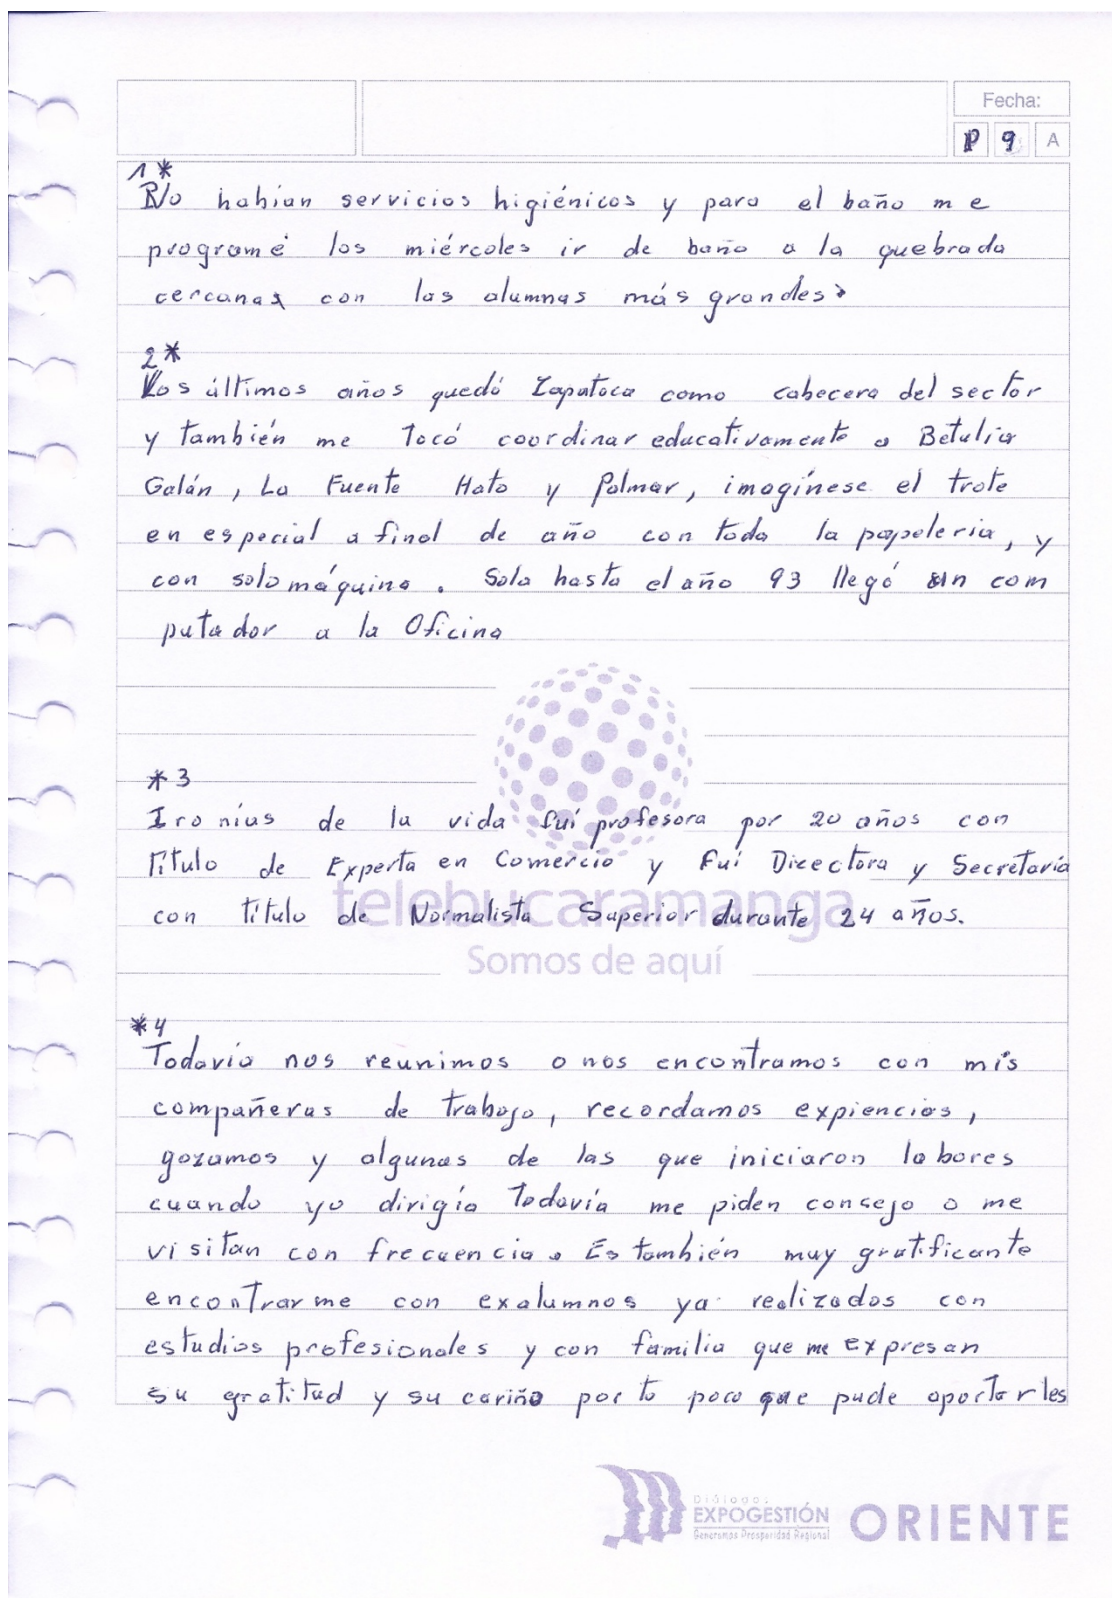 Fecha:
P 9 A
1*
No habian servicios higiénicos y para el baño me
programé los miércoles ir de baño a la quebrada
cercana con las alumnas más grandes.
2*
Los últimos años quedó Zapatoca como cabecera del sector
y también me tocó coordinar educativamente a Betulia
Galán, La Fuente Hato y Palmar, imagínese el trote
en especial a final de año con toda la papeleria, y
con solo máquina. Solo hasta el año 93 llegó un com
putador a la Oficina
*3
Ironias de la vida fuí profesora por 20 años con
Título de Experta en Comercio y Fuí Directora y Secretaría
con título de Normalista Superior durante 24 años.
telebucaramanga
Somos de aquí
*4
Todavía nos reunimos o nos encontramos con mis
compañeras de trabajo, recordamos expiencias,
gozamos y algunas de las que iniciaron labores
cuando yo dirigía Todavía me piden consejo o me
visitan con frecuencia. Es también muy gratificante
encontrarme con exalumnos ya realizados con
estudios profesionales y con familia que me expresan
su gratitud y su cariño por lo poco que pude aportarles
Diálogos
EXPOGESTIÓN ORIENTE
Generamos Prosperidad Regional